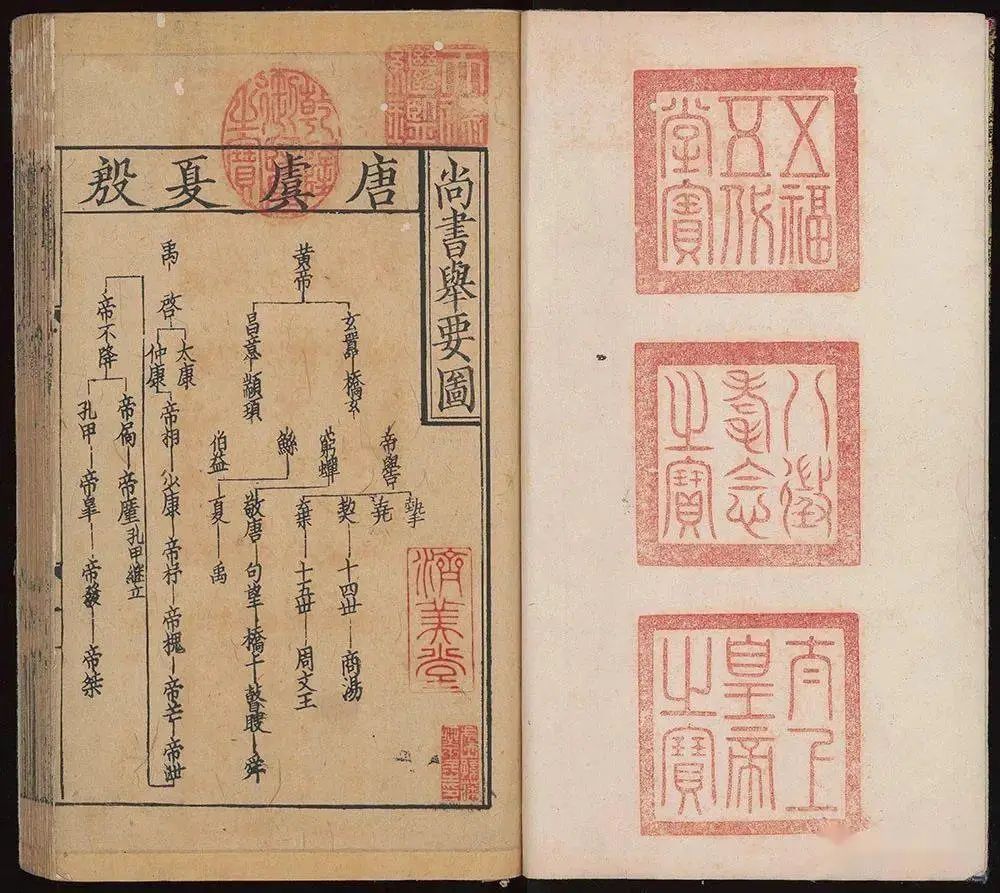 五福
五代
堂寶
八徵
耄念
之寶
太上
皇帝
之寶
乾隆
御覽
之寶
尚書舉要圖
唐虞夏殷
黄帝
玄囂 橋玄
昌意 顓頊
帝嚳
窮蟬
鯀
伯益
摯
堯
契 十四世 商湯
棄 十五世 周文王
敬唐 句望 橋牛 瞽瞍 舜
夏 禹
禹
啓
太康
仲康
帝相 少康 帝杼 帝槐 帝芒 帝泄
帝不降
帝扃 帝廑 孔甲継立
孔甲 帝皐 帝發 帝桀
濟美堂